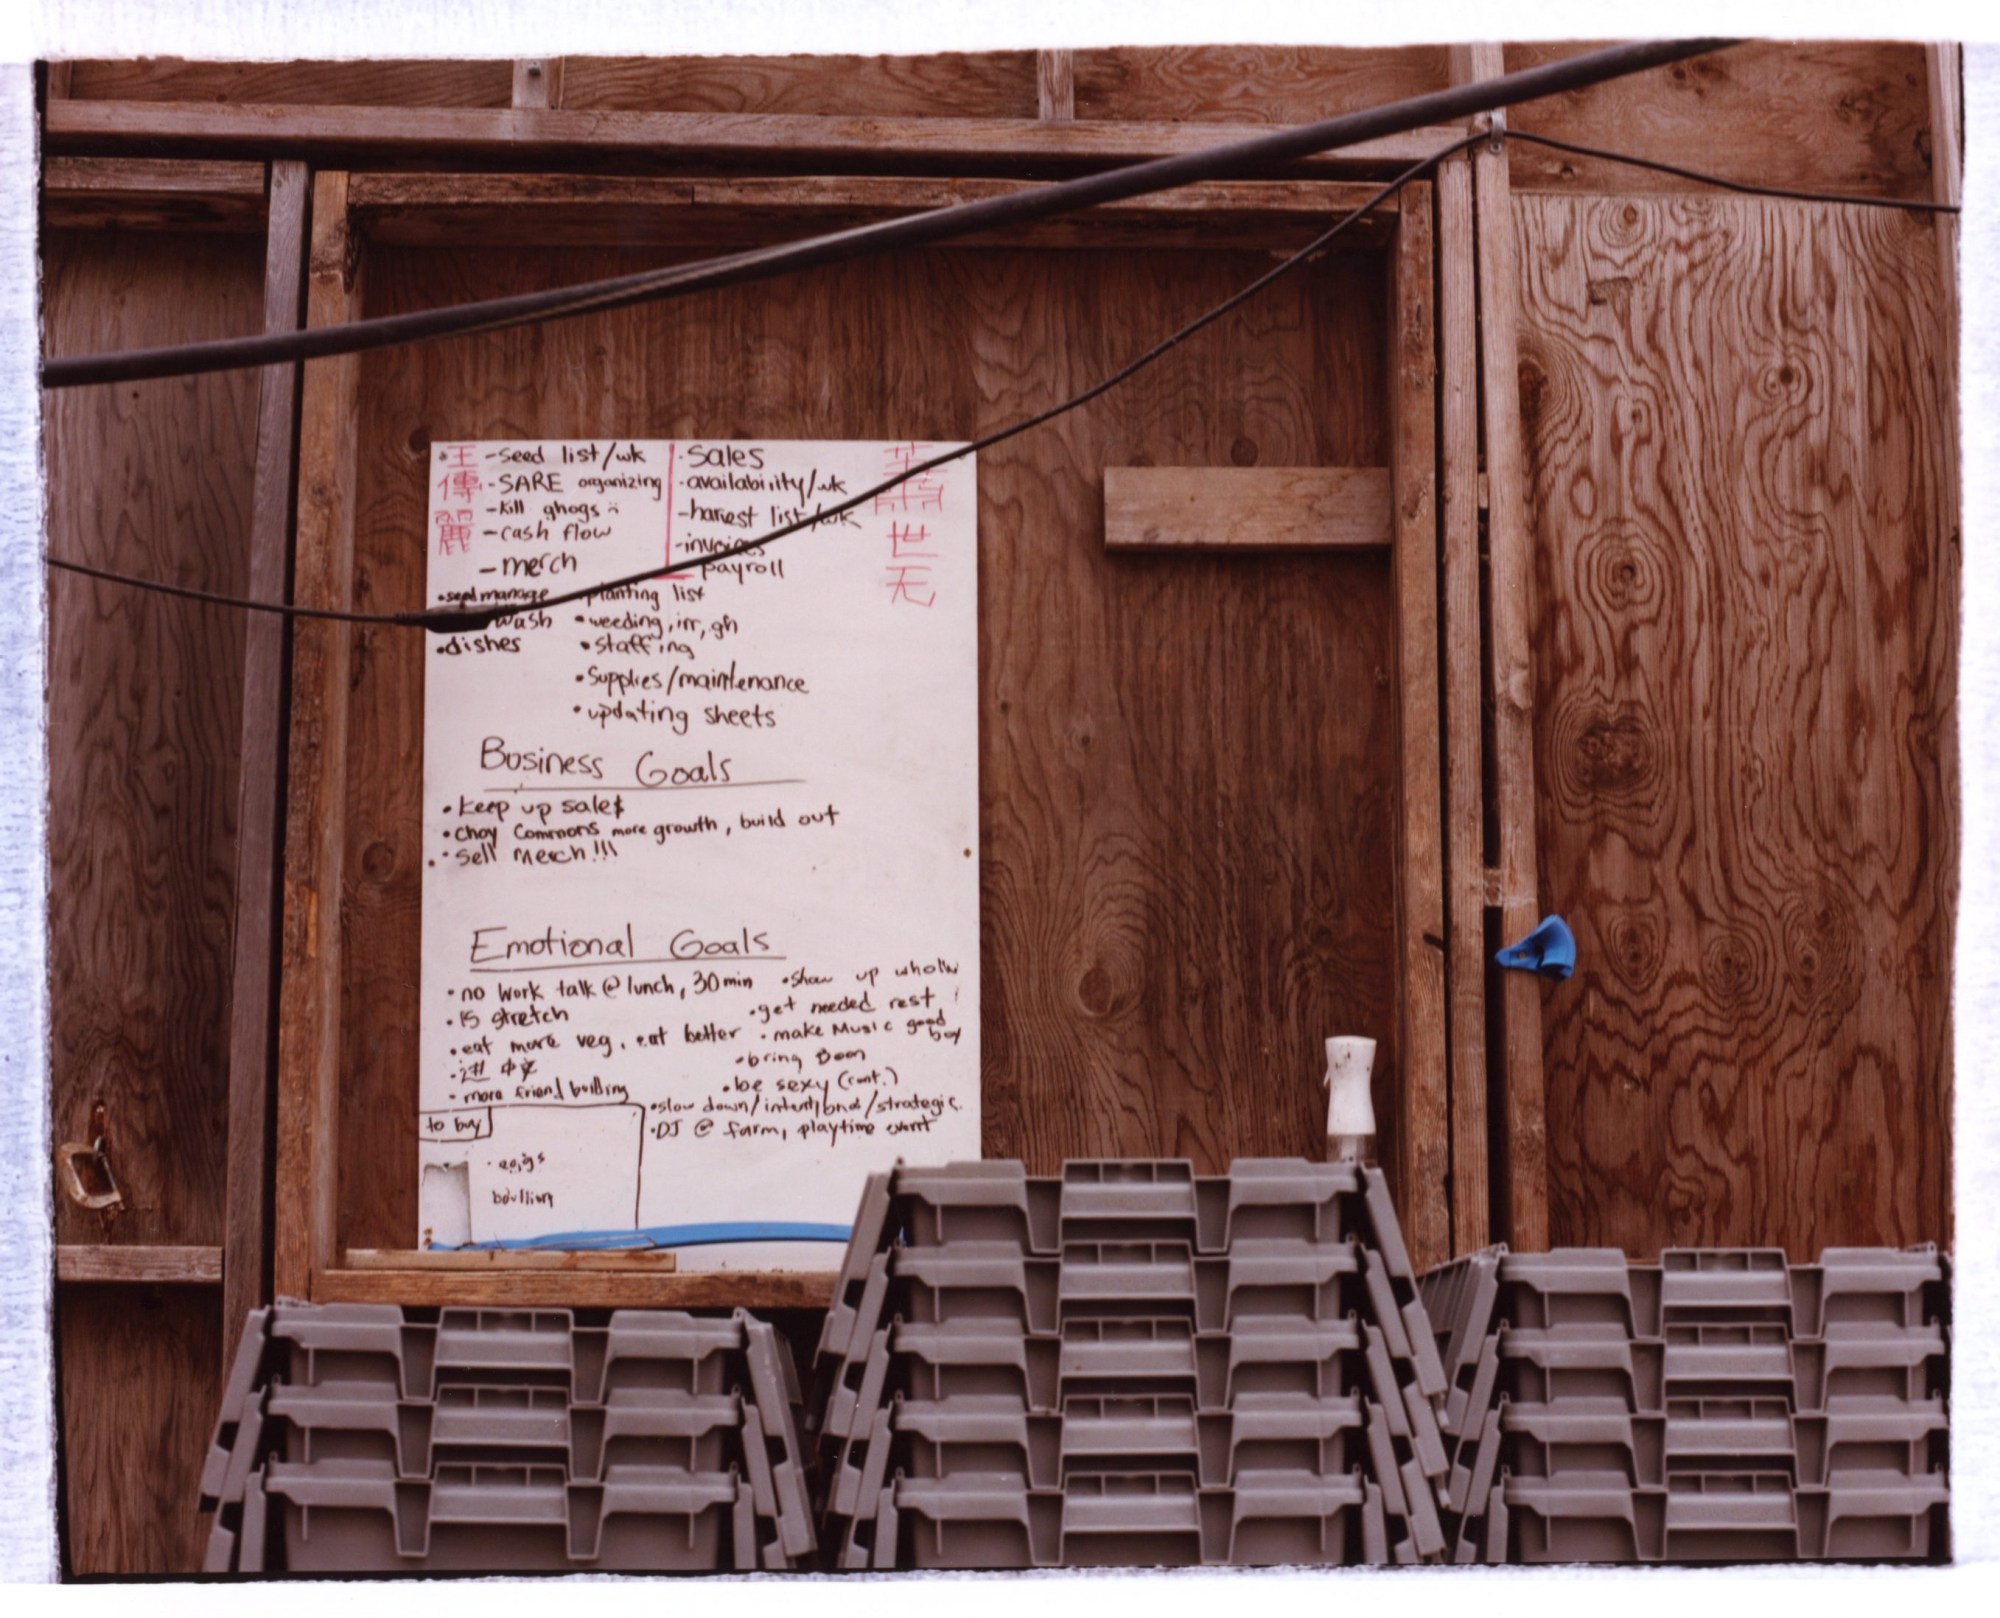 王傳麗
- seed list/wk
- SARE organizing
- kill ghogs
- cash flow
- merch
• Sales
• availability/wk
- harvest list/wk
- invoices
payroll
世无
• seed manage
wash
• dishes
• planting list
• weeding, irr, gh
• staffing
• Supplies/maintenance
• updating sheets
Business Goals
• keep up sale$
• Choy Commons more growth, build out
• Sell merch!!!
Emotional Goals
• no work talk @ lunch, 30 min
• 15 stretch
• eat more veg, eat better
• 进 中文
• more friend building
• show up
• get needed rest
• make Music good boy
• bring Boon
• be sexy (cont.)
• slow down/intentional/strategic
• DJ @ farm, playtime event
to buy
bouillion